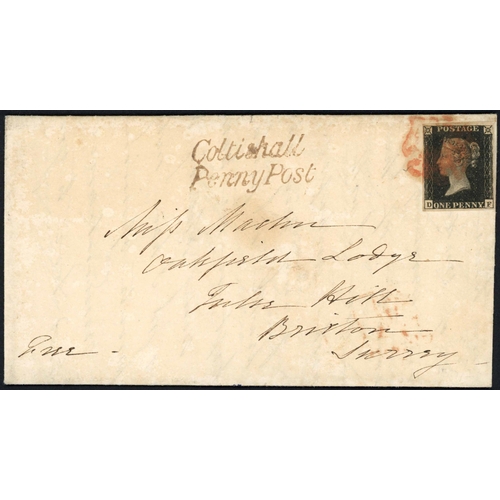 Coltishall
Penny Post
POSTAGE
D ONE PENNY F
Miss
Oakfield Lodge
Tulse Hill
Brixton
Surrey
Free